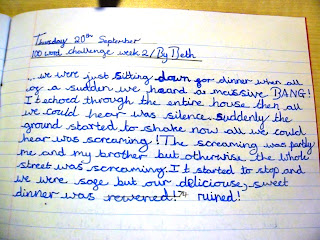 Thursday 20th September
100 word challenge week 2/By Beth
...we were just sitting down for dinner when all
of a sudden we heard as massive BANG!
It echoed through the entire house then all
we could hear was silence. suddenly the
ground started to shake now all we could
hear was screaming! The screaming was partly
me and my brother but otherwise the whole
street was screaming. It started to stop and
we were safe but our deliciouse, sweet
dinner was rewened! 74 ruined!